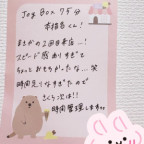 Joy Box 75分
本指名くん!
まさかの2回目来店…!
スピード感ありすぎて
ちょっとおもろかったな…笑
時間足りなすぎたので
さくら次は!!
時間管理します